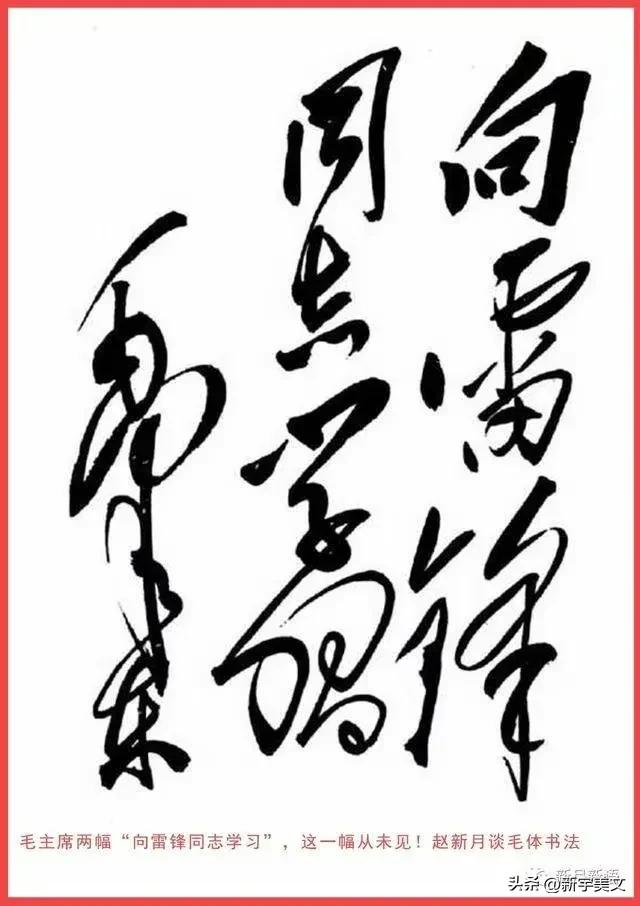 向雷锋
同志学习
毛泽东
毛主席两幅“向雷锋同志学习”，这一幅从未见！赵新月谈毛体书法
新月新语
头条 @新宇美文